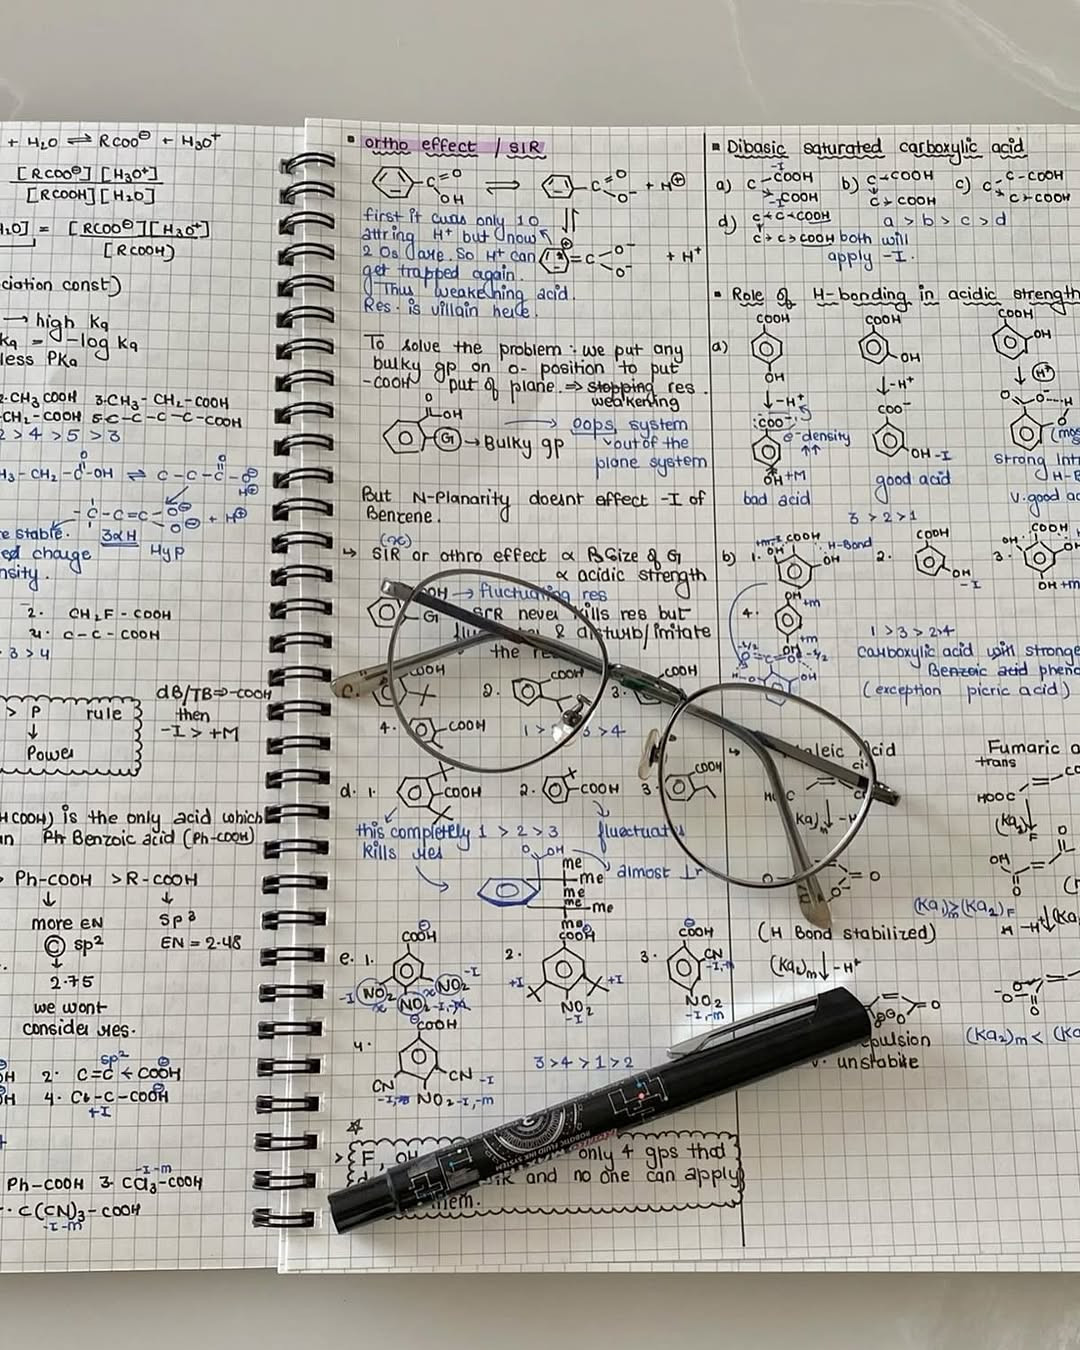 + H₂O ⇌ RCOO⊖ + H₃O⁺
[RCOO⊖][H₃O⁺]
[RCOOH][H₂O]
H₂O] = [RCOO⊖][H₃O⁺]
[RCOOH)
ciation const)
→ high Ka
Ka = -log Ka
less PKa
2. CH₃COOH 3. CH₃-CH₂-COOH
CH₂-COOH 5. C-C-C-C-COOH
2 > 4 > 5 > 3
H₃-CH₂-C-OH ⇌ C-C-C-O⊖
O
O
H⊕
-C-C=C
O⊖
O⊖ + H⊕
e stable. 3αH
ed charge HyP
nsity.
2. CH₂F-COOH
4. C-C-COOH
3 > 4
dB/TB⇒-COOH
> P rule then
↓ -I > +M
Power
HCOOH) is the only acid which
an Ph Benzoic acid (Ph-COOH)
> Ph-COOH > R-COOH
↓ ↓
more EN SP³
© sp² EN = 2.48
↓
2.75
we wont
consider res.
sp²
OH 2. C=C←COOH
OH 4. C-C-COOH
+I
-I-m
Ph-COOH 3. CCl₃-COOH
C(CN)₃-COOH
-I-m
▪ ortho effect / SIR
C=O
OH
⇌
C=O
O⁻ + H⊕
first it was only 1 O
attring H⁺ but now
2 Os are. So H⁺ can
get trapped again.
Thus weakening acid.
Res. is villain here.
=C
O⁻
O⁻
+ H⁺
To solve the problem : we put any
bulky gp on o- position to put
-COOH out of plane. ⇒ stopping res.
weakening
O
OH
G → Bulky gp
→ oops, system
out of the
plane system
But N-Planarity doesnt affect -I of
Benzene.
↳ SIR or othro effect ∝ Size of G
∝ acidic strength
OH → fluctuating res
G
SIR never kills res but
& disturb/imitate
the re
COOH 2. COOH 3. COOH
4. COOH 1 > 3 > 4
d. 1. COOH 2. COOH 3. COOH
this completely 1 > 2 > 3 fluctuat
kills res
O OH
me
me
me
me
me
me
almost ⊥r
e. 1. COOH 2. COOH 3. COOH
-I NO₂ NO₂ -I +I +I CN -I,-m
NO₂ -I,-M NO₂ NO₂
-I -I,-m
4. COOH
CN CN -I
-I NO₂ -I,-m
3 > 4 > 1 > 2
☆
> F, OH only 4 gps that
SIR and no one can apply
them.
ROBOTIC FLUID INK SYSTEM
▪ Dibasic saturated carboxylic acid
a) C-COOH b) C→COOH c) C-C-COOH
-I
-I COOH C→COOH C→COOH
d) C←C←COOH a > b > c > d
C→C→COOH both will
apply -I.
▪ Role of H-bonding in acidic strength
a) COOH COOH COOH
OH OH OH
↓-H⁺ ↓-H⁺ ↓ H⁺
COO⁻ COO⁻ O O⁻---H
e⁻density
↑↑
OH+M OH -I (mos
bad acid good acid strong Int
H-B
v.good ac
3 > 2 > 1
b) 1. OH COOH OH H-Bond 2. COOH OH -I 3. OH COOH OH
OH +m
OH+m
4.
+m
OH
1 > 3 > 2 > 4
carboxylic acid with stronge
Benzoic acid pheno
(exception picric acid)
↳ aleic Acid Fumaric a
cis trans
HOOC
Ka)m ↓-H (Ka₁)F
(Ka₁)m>(Ka₂)F
(H Bond stabilized)
(Ka₂)m ↓-H⁺
pulsion
unstabile
(Ka₂)m < (Ka